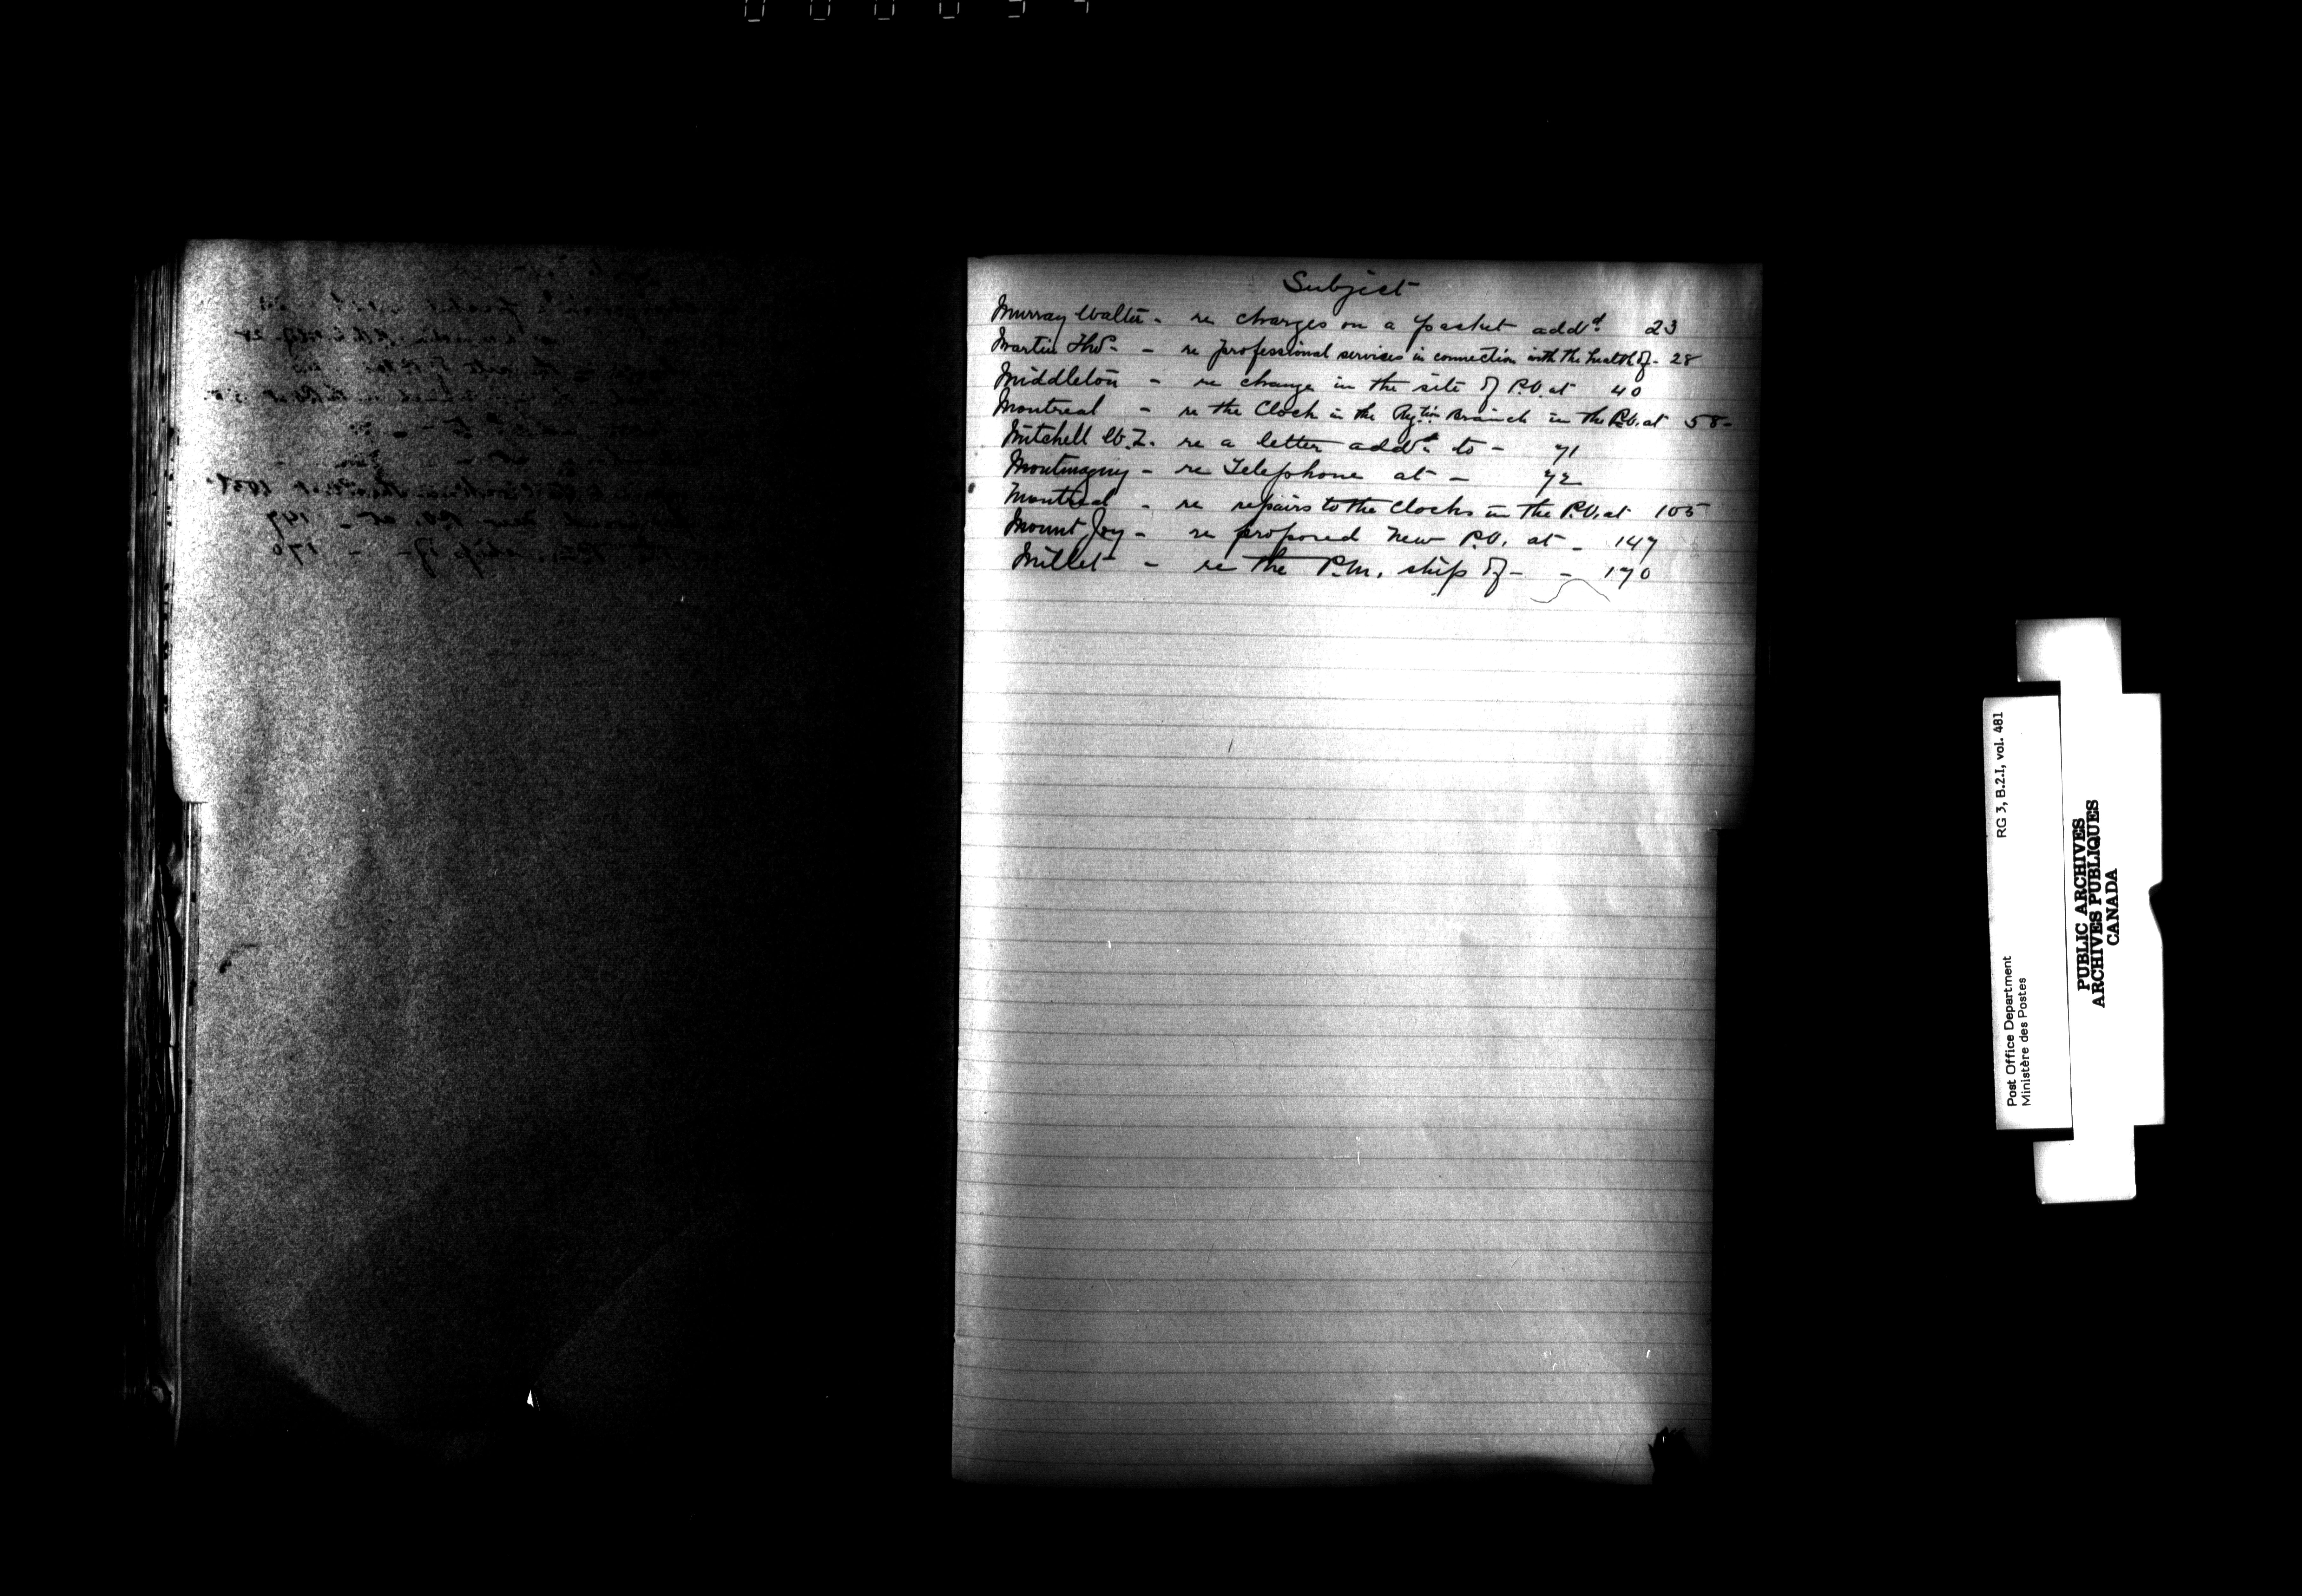 Subject
Murray Walter - re charges on a packet add'd. 23
Martin Thos - re professional services in connection with the health of - 28
Middleton - re change in the site of P.O. at 40
Montreal - re the Clock in the Branch in the P.O. at 58 -
Mitchell W. Z. re a letter add'd to - 71
Montmagny - re Telephone at - 72
Montreal - re repairs to the Clocks in the P.O. at 105
Mount Joy - re proposed New P.O. at - 147
Millet - re the P.M. ship of - - 170
RG 3, B.2.I, vol. 481
Post Office Department
Ministère des Postes
PUBLIC ARCHIVES
ARCHIVES PUBLIQUES
CANADA